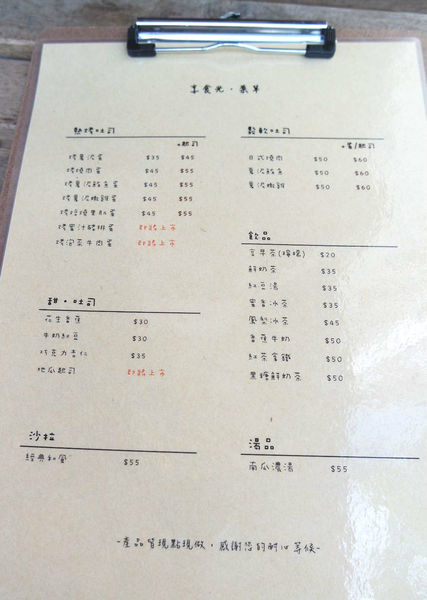 享食光·菜單
熱烤吐司
+起司
烤夏波蛋 $35 $45
烤燒肉蛋 $45 $55
烤夏波鮪魚蛋 $45 $55
烤夏波嫩雞蛋 $45 $55
烤拉燒里肌蛋 $45 $55
烤蜜汁豬排蛋 即將上市
烤泡菜牛肉蛋 即將上市
鬆軟吐司
+蛋/起司
日式燒肉 $50 $60
夏波鮪魚 $50 $60
夏波嫩雞 $50 $60
飲品
$20
鮮奶茶 $35
紅豆湯 $35
蜜香冰茶 $35
鳳梨冰茶 $45
香蕉牛奶 $50
紅茶拿鐵 $50
黑糖鮮奶茶 $50
甜·吐司
花生香蕉 $30
牛奶紅豆 $30
巧克力杏仁 $35
地瓜起司 即將上市
沙拉
經典和風 $55
湯品
南瓜濃湯 $55
-產品皆現點現做，感謝您的耐心等候-